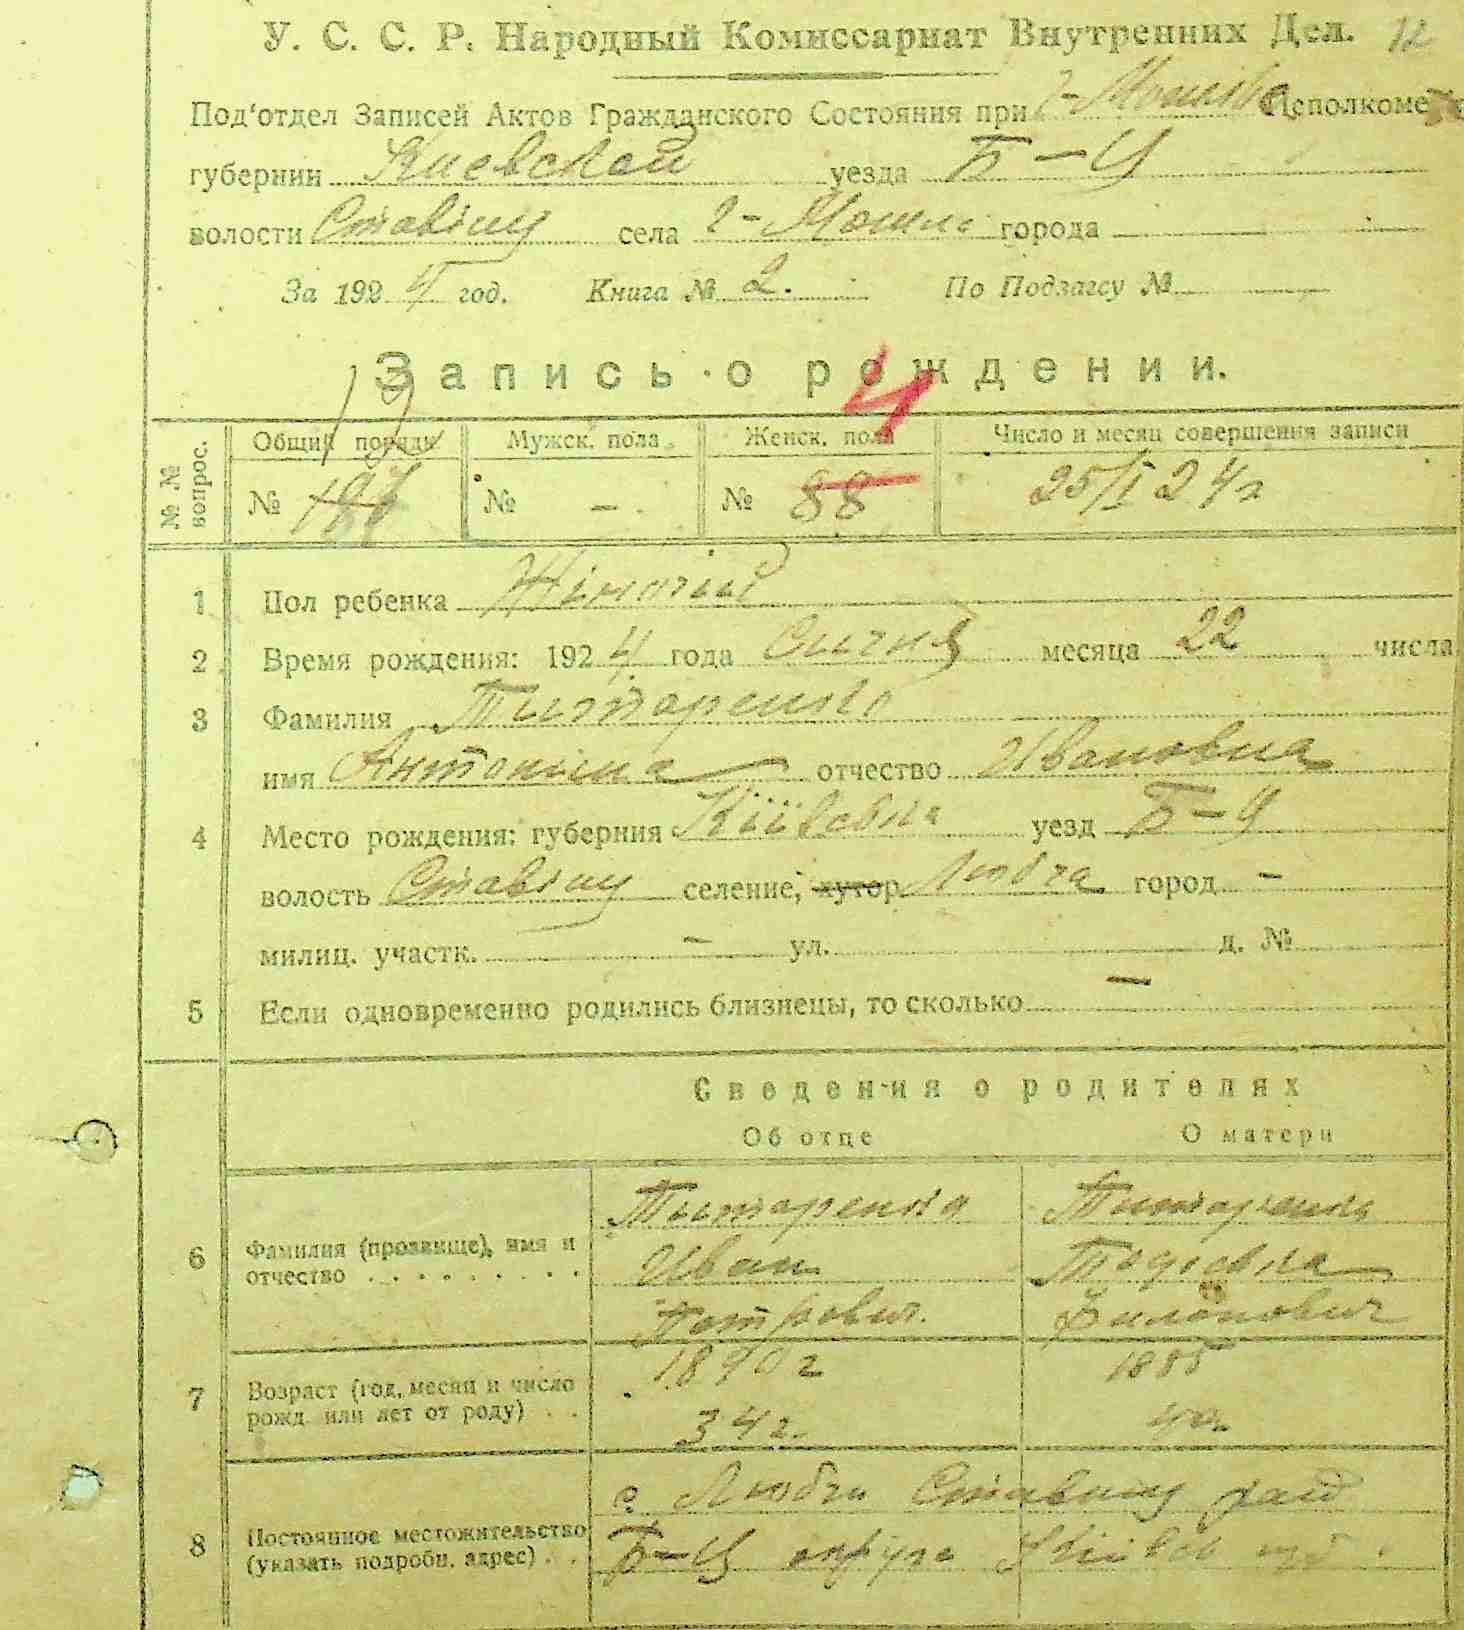 У. С. С. Р. Народный Комиссариат Внутренних Дел. 12
Под'отдел Записей Актов Гражданского Состояния при Исполкоме
губернии Киевской уезда Б-Ц
волости Ставищ села города
За 1924 год. Книга № 2. По Подзагсу №
Запись о рождении.
4
№ № вопрос. Общий порядк Мужск. пола Женск. пола Число и месяц совершения записи
№ № - № 88 25/I 24 г
1 Пол ребенка Жіночий
2 Время рождения: 1924 года Січня месяца 22 числа
3 Фамилия Титаренко
имя Антонина отчество Ивановна
4 Место рождения: губерния Київсвка уезд Б-Ц
волость Ставищ селение, хутор Любча город -
милиц. участк. - ул. д. №
5 Если одновременно родились близнецы, то сколько -
Сведения о родителях
Об отце О матери
6 Фамилия (прозвище), имя и отчество Титаренко Титаренко
Иван
Петрович. Филонович
7 Возраст (год, месяц и число рожд. или лет от роду) 1890 г 1885
34 г.
8 Постоянное местожительство (указать подробн. адрес) с. Любча Ставищ рай
Б-Ц округа Київсв губ.